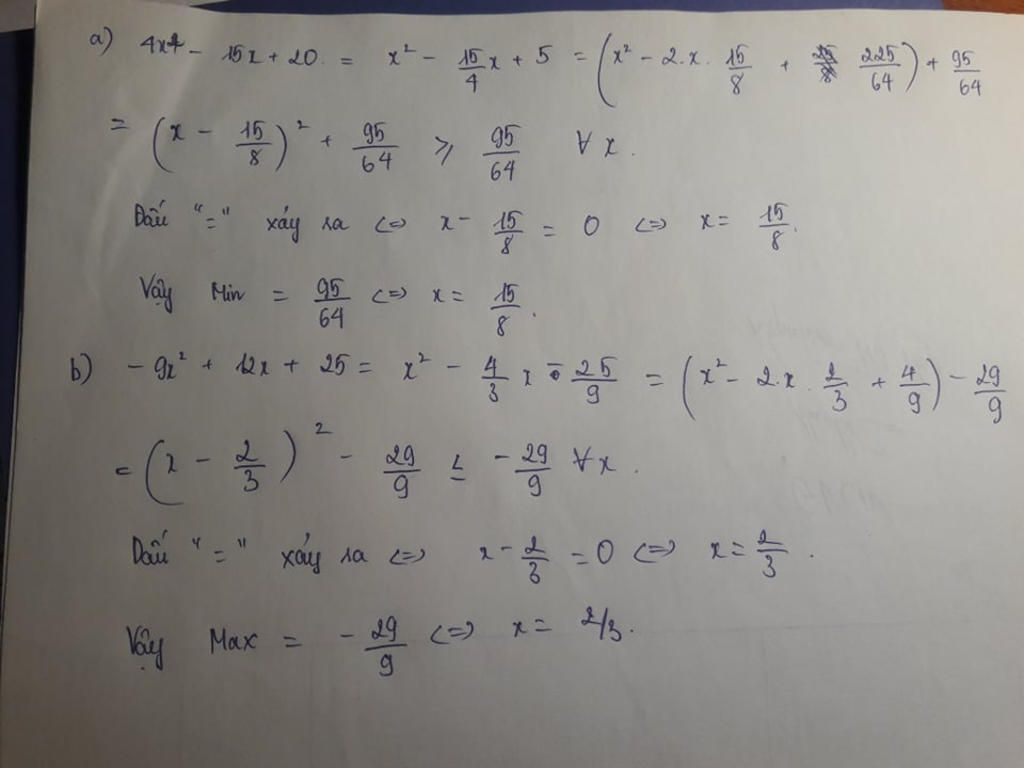 a) 4x² - 15x + 20. = x² - 15/4 x + 5 = (x² - 2.x. 15/8 + 225/64) + 95/64
= (x - 15/8)² + 95/64 ⩾ 95/64 ∀ x.
Dấu "=" xảy ra <=> x - 15/8 = 0 <=> x = 15/8.
Vậy Min = 95/64 <=> x = 15/8.
b) - 9x² + 12x + 25 = x² - 4/3 x - 25/9 = (x² - 2.x. 2/3 + 4/9) - 29/9
= (x - 2/3)² - 29/9 ≤ - 29/9 ∀x.
Dấu "=" xảy ra <=> x - 2/3 = 0 <=> x = 2/3.
Vậy Max = - 29/9 <=> x = 2/3.